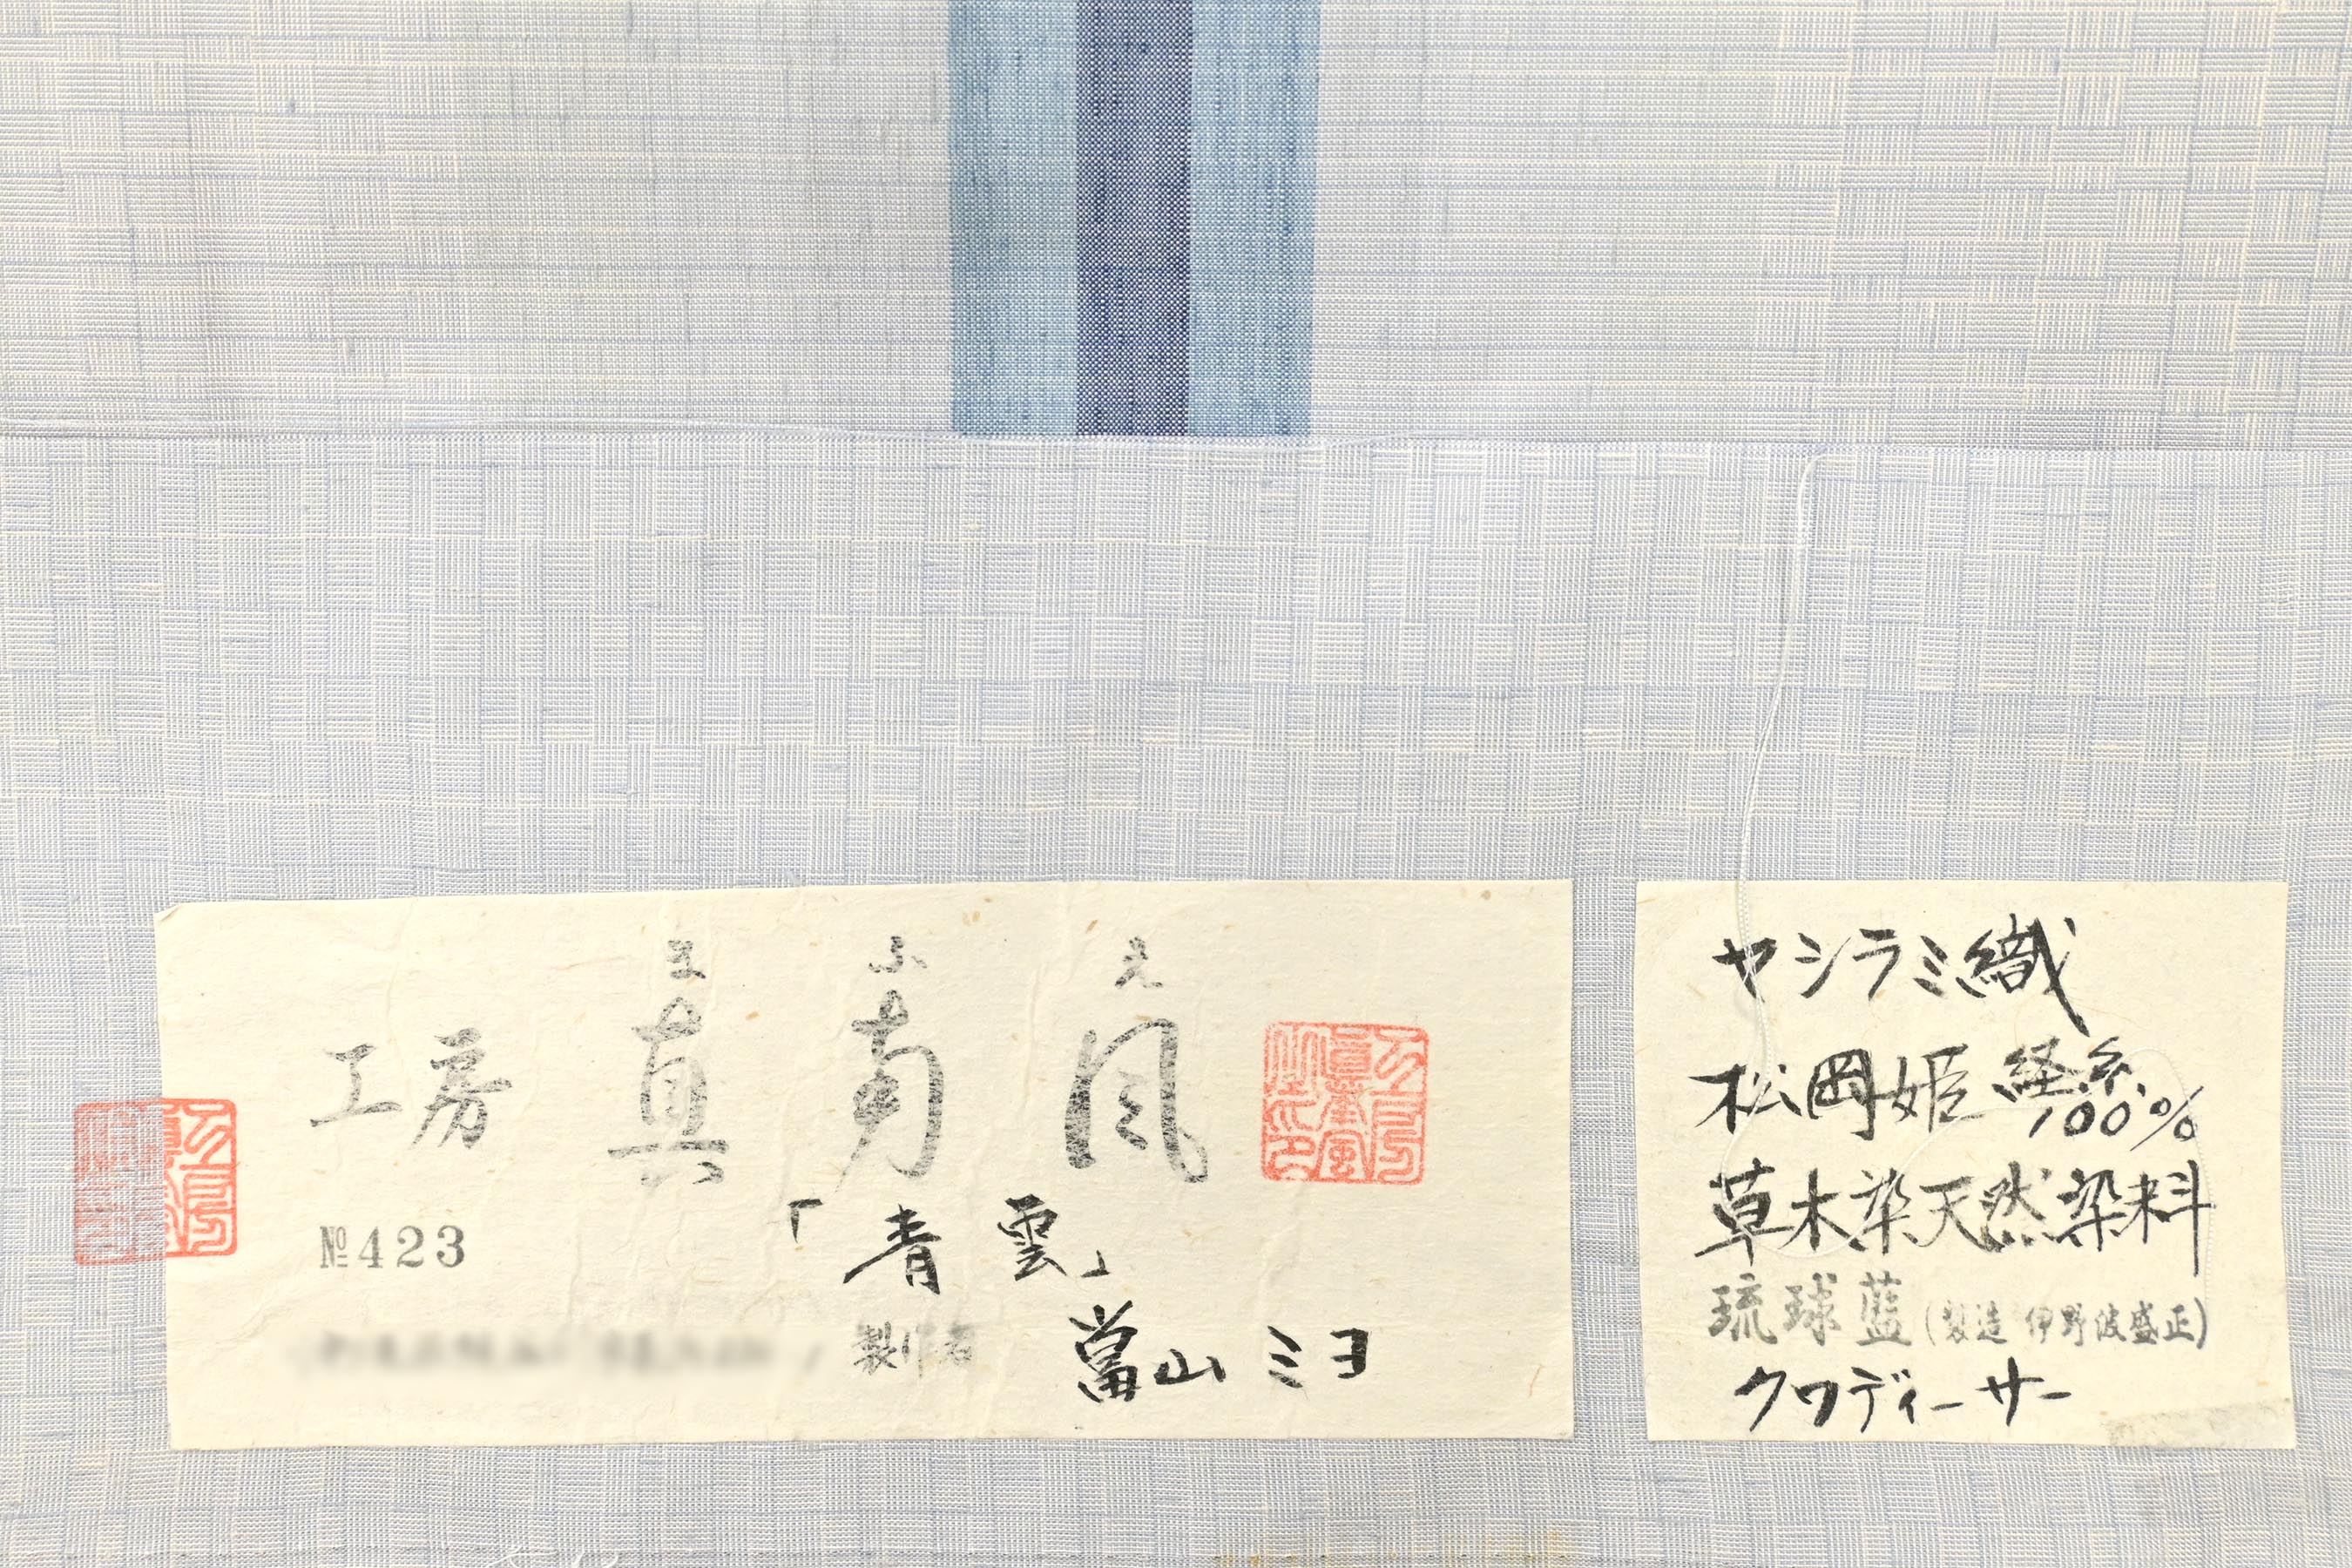 ま ふ え
工房 真南風
№423
「青雲」
製作者 當山ミヨ
ヤシラミ織
松岡姫 経糸100%
草木染天然染料
琉球藍(製造 伊野波盛正)
クワディーサー